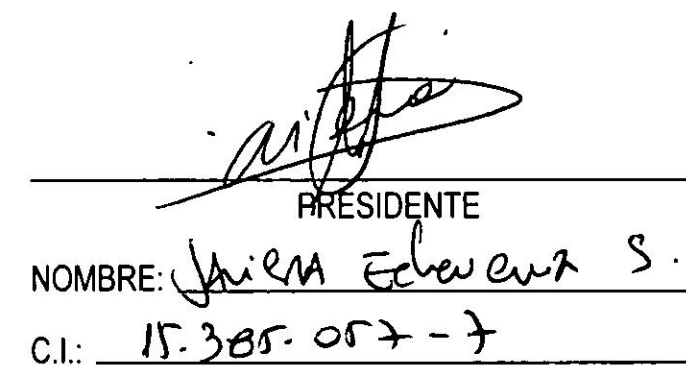 PRESIDENTE
NOMBRE: Javiera Echeverria S.
C.I.: 15.385.057-7